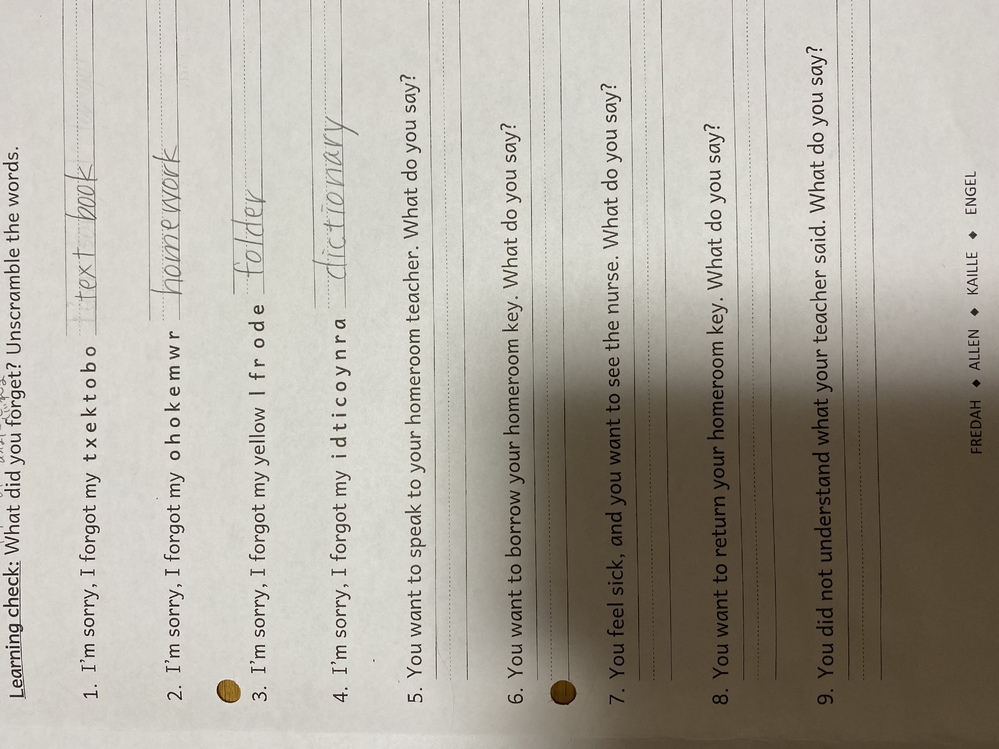 Learning check: What did you forget? Unscramble the words.
1. I'm sorry, I forgot my t x e k t o b o text book
2. I'm sorry, I forgot my o h o k e m w r homework
3. I'm sorry, I forgot my yellow l f r o d e folder
4. I'm sorry, I forgot my i d t i c o y n r a dictionary
5. You want to speak to your homeroom teacher. What do you say?
6. You want to borrow your homeroom key. What do you say?
7. You feel sick, and you want to see the nurse. What do you say?
8. You want to return your homeroom key. What do you say?
9. You did not understand what your teacher said. What do you say?
FREDAH ◆ ALLEN ◆ KAILLE ◆ ENGEL